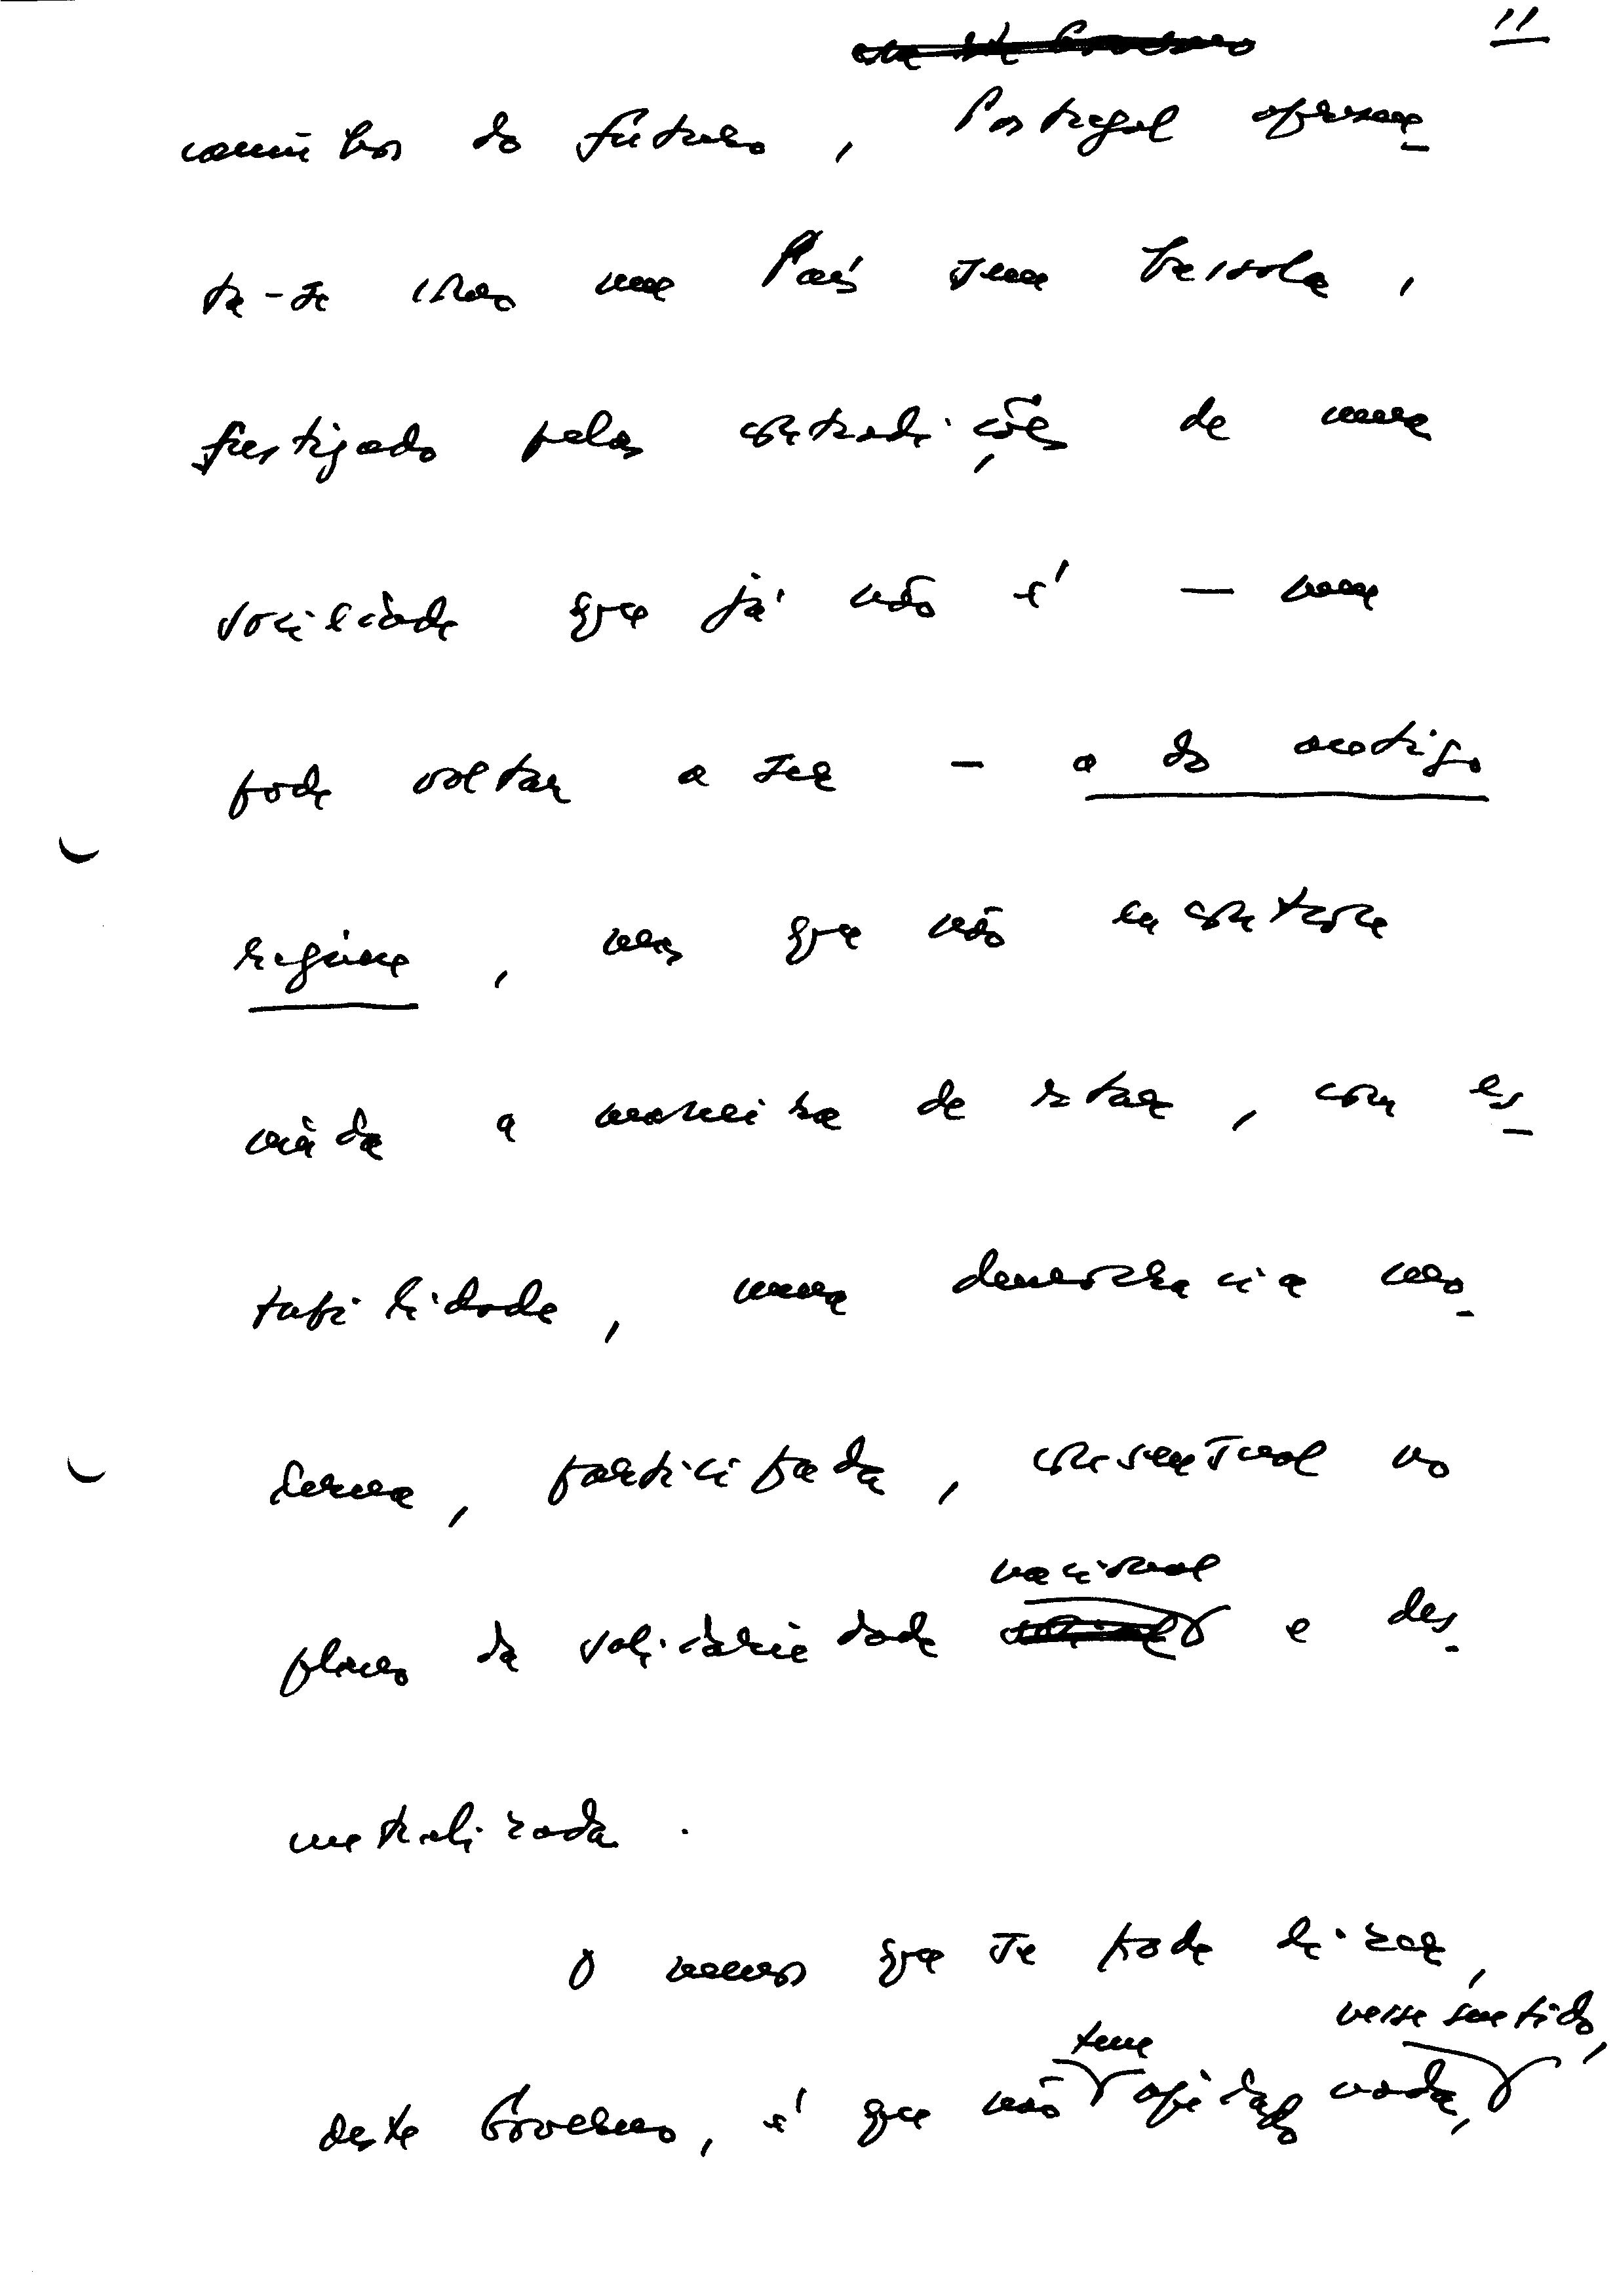 11
caminhos do futuro, Portugal apresen-
ta-se como um País sem bússola,
fustigado pelas contradições de uma
sociedade que já não é — nem
pode voltar a ser — a do antigo
regime, mas que não encontrou
ainda a maneira de estar, com es-
tabilidade, numa democracia mo-
derna, participada, consensual no
plano da solidariedade nacional e des-
centralizada.
O menos que se pode dizer,
deste Governo, é que não tem ajudado nada, nesse sentido,